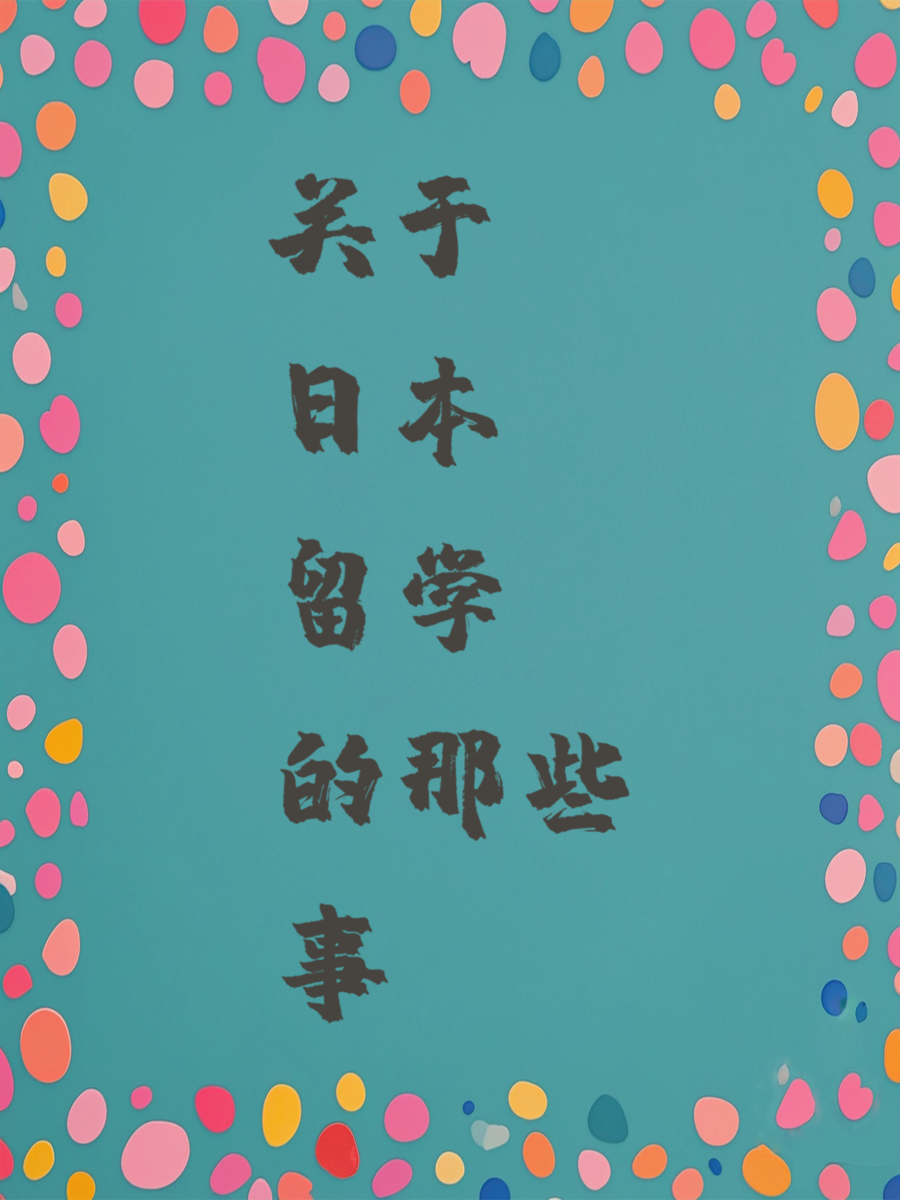 关于
日本
留学
的那些
事